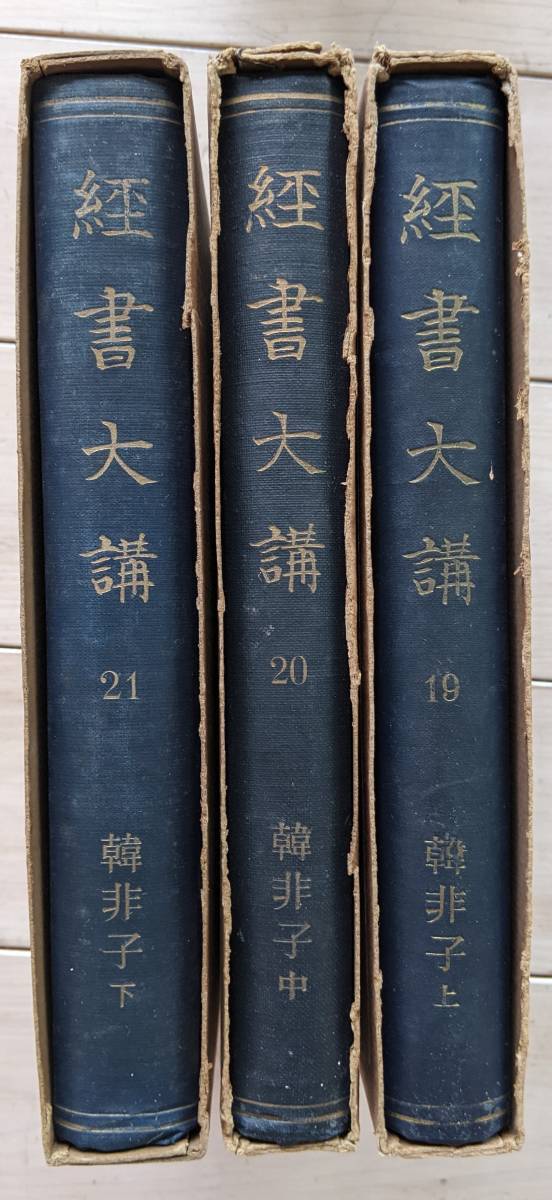 經書大講
19
韓非子上
經書大講
20
韓非子中
經書大講
21
韓非子下